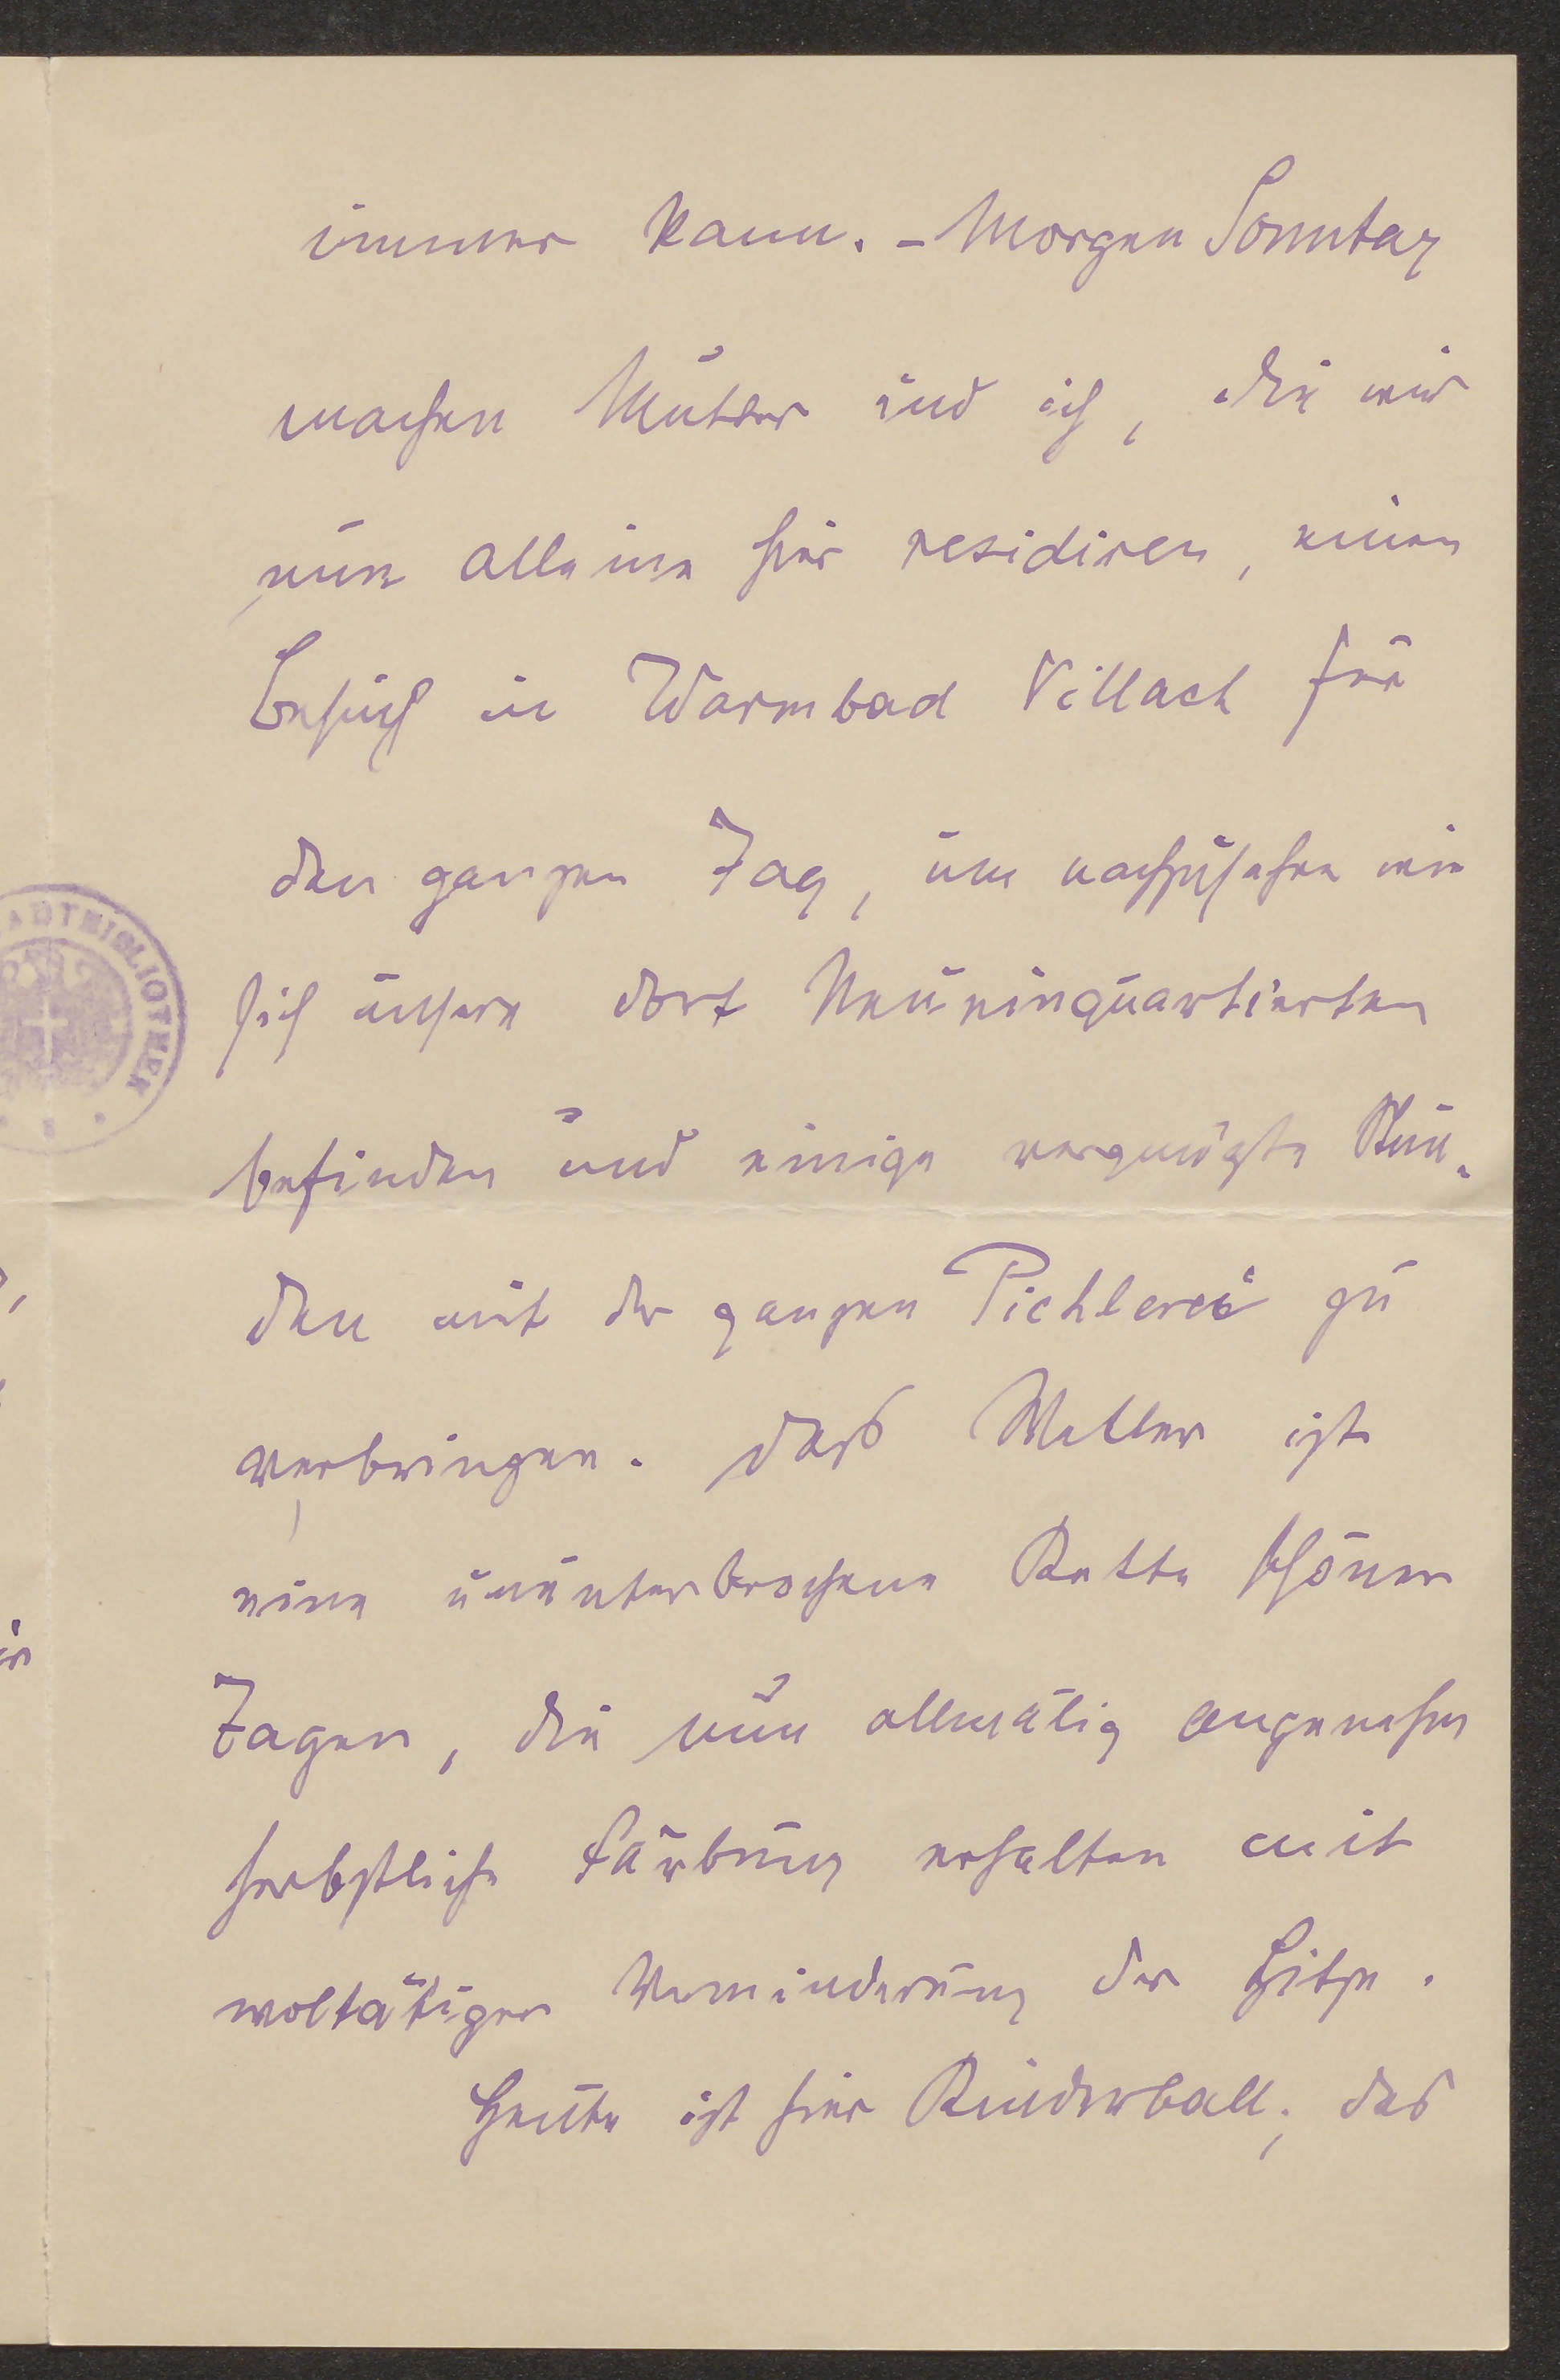 immer kann. – Morgen Sonntag
machen Mutter und ich, die wir
nun alleine hier residiren, einen
Besuch in Warmbad Villach für
den ganzen Tag, um nachzusehen wie
sich unsere dort Neueinquartierten
befinden und einige vergnügte Stun-
den mit der ganzen Pichlerei zu
verbringen. Das Wetter ist
eine ununterbrochene Kette schöner
Tagen, die nun allmälig angenehm
herbstliche Färbung erhalten mit
woltätiger Verminderung der Hitze.
Heute ist hier Kinderball; das
ADTBIBLIOTHEK